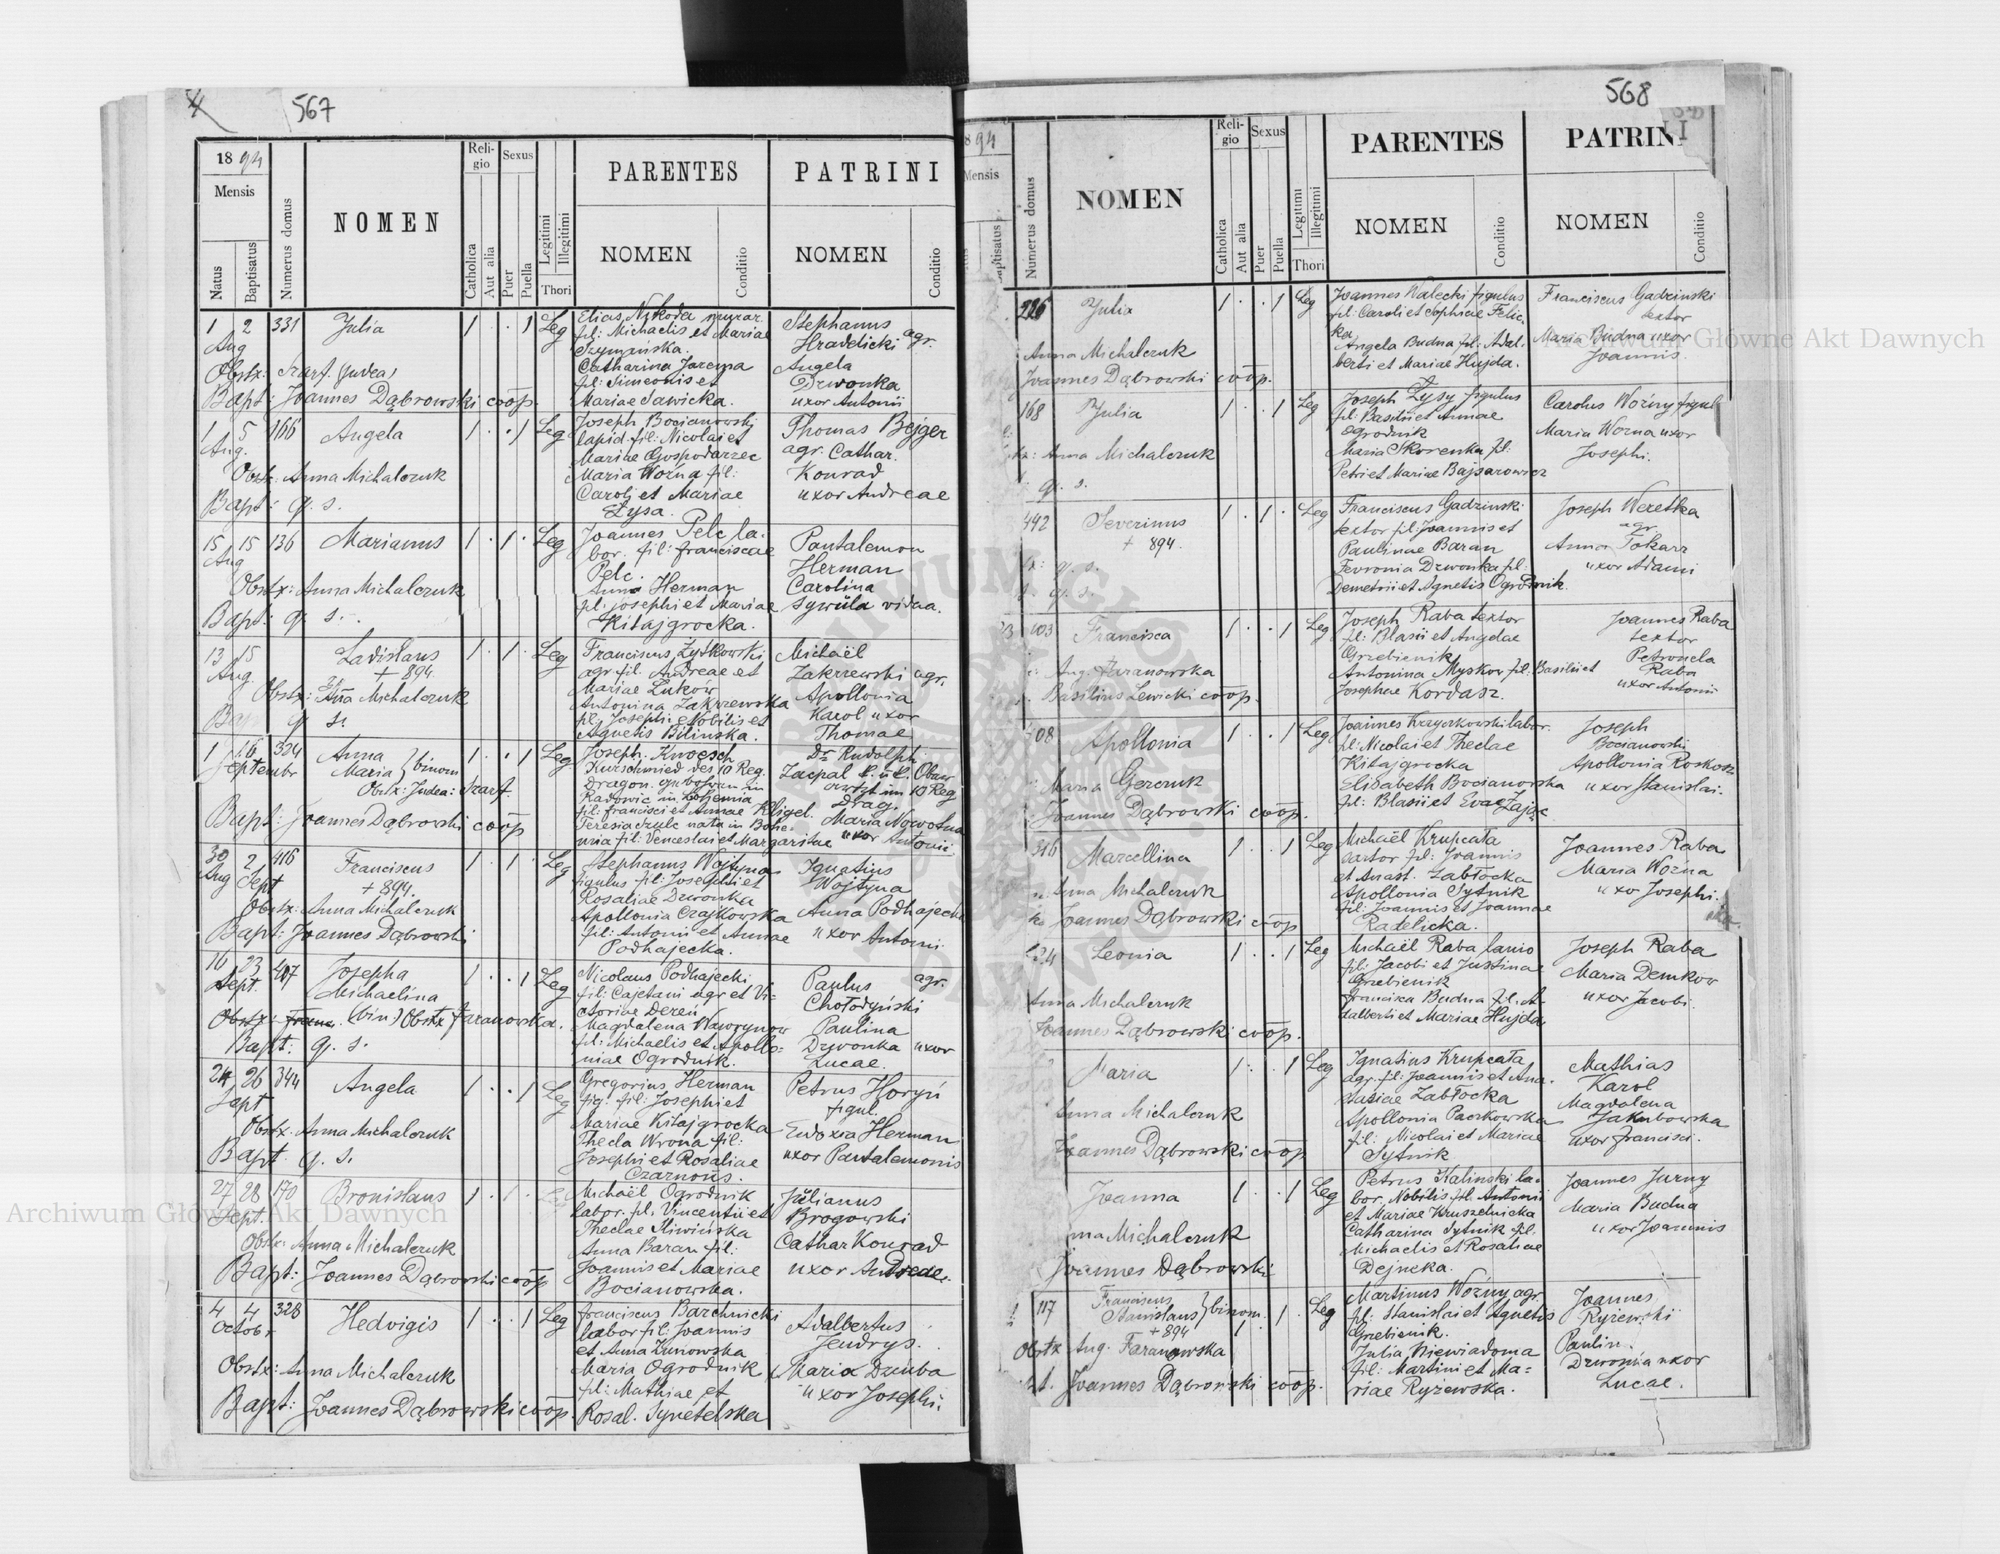 567
1894
Mensis
Natus
Baptisatus
Numerus domus
NOMEN
Religio
Catholica
Aut alia
Sexus
Puer
Puella
Legitimi
Illegitimi
Thori
PARENTES
NOMEN
Conditio
PATRINI
NOMEN
Conditio
1 2 331 Julia 1 . . 1 Leg
Aug
Obstx: Szarf. Judea
Bapt: Joannes Dąbrowski coop.
Elias Nykoda murar.
fil: Michaelis et Mariae
Szymańska.
Catharina Jarema
fil: Simeonis et
Mariae Sawicka.
Stephanus
Hradelicki agr.
Angela
Dzwonka
uxor Antonii
1 5 166 Angela 1 . . 1 Leg
Aug.
Obstx: Anna Michalczuk
Bapt: q. s.
Joseph Bocianowski
lapid. fil: Nicolai et
Mariae Gospodarzec
Maria Woźna fil:
Caroli et Mariae
Łysa.
Thomas Bejger
agr. Cathar.
Konrad
uxor Andreae
15 15 136 Marianus 1 . 1 . Leg
Aug
Obstx: Anna Michalczuk
Bapt: q. s.
Joannes Pelc la-
bor. fil: Franciscae
Pelc.
Anna Herman
fil: Josephi et Mariae
Kitajgrocka.
Pantalemon
Herman
Carolina
Sywula vidua.
13 15 Ladislaus 1 . 1 . Leg
Aug. + 894
Obstx: Anna Michalczuk
Bapt q. s.
Franciscus Żytkowski
agr. fil. Andreae et
Mariae Luków
Antonina Zakrzewska
fil. Josephi Nobilis et
Agnetis Bilinska.
Michaël
Zakrzewski agr.
Apollonia
Karol uxor
Thomae
1 16 324 Anna 1 . . 1 Leg
Septembr Maria } binom
Obstx: Judea: Szarf.
Bapt: Joannes Dąbrowski coop
Joseph. Knoesch
Kurschmied des 10 Reg.
Dragon. geboren in
Radonic in Bohemia
fil: Francisci et Annae Kligel.
Teresia Czule nata in Bohe-
mia fil: Venceslai et Margaritae
Dr Rudolph
Zaepal k. u. k. Ober
arzt im 10 Reg
Drag.
Maria Nowotna
uxor Antonii
30 2 416 Franciscus 1 . 1 . Leg
Aug Sept + 894.
Obstx: Anna Michalczuk
Bapt: Joannes Dąbrowski
Stephanus Wojtyna
figulus fil: Josephi et
Rosaliae Dzwonka
Apollonia Czajkowska
fil: Antonii et Annae
Podhajecka.
Ignatius
Wojtyna
Anna Podhajecka
uxor Antonii
16 23 407 Josepha 1 . . 1 Leg
Sept. Michaelina
(bin:) Obstx Taranowska.
Bapt: q. s.
Nicolaus Podhajecki
fil: Cajetani agr et Vi-
ctoriae Dereń
Magdalena Wawrynow
fil: Michaelis et Apollo-
niae Ogrodnik.
Paulus agr.
Chołodyński
Paulina
Dzwonka uxor
Lucae.
24 26 344 Angela 1 . . 1 Leg
Sept
Obstx. Anna Michalczuk
Bapt. q. s.
Gregorius Herman
fig. fil: Josephi et
Mariae Kitajgrocka
Thecla Wrona fil:
Josephi et Rosaliae
Czarnous.
Petrus Horyń
figul.
Eudoxia Herman
uxor Pantalemonis
27 28 170 Bronislaus 1 . 1
Sept.
Obstx. Anna Michalczuk
Bapt: Joannes Dąbrowski coop
Michaël Ogrodnik
labor. fil. Vincentii et
Theclae Sliwińska
Anna Baran fil:
Joannis et Mariae
Bocianowska.
Julianus
Brogowski
Cathar Konrad
uxor Andreae.
4 4 328 Hedvigis 1 . . 1 Leg
Octobr
Obstx: Anna Michalczuk
Bapt: Joannes Dąbrowski coop.
Franciscus Barchnicki
labor fil: Joannis
et Anna Zunowska
Maria Ogrodnik
fil: Mathiae et
Rosal. Synetelska
Adalbertus
Jendrys.
Maria Dziuba
uxor Josephi.
568
94
Mensis
Numerus domus
NOMEN
Religio
Catholica
Aut alia
Sexus
Puer
Puella
Legitimi
Illegitimi
Thori
PARENTES
NOMEN
Conditio
PATRIN
NOMEN
Conditio
226 Julia 1 . . 1 Leg
Anna Michalczuk
Joannes Dąbrowski coop.
Joannes Walecki figulus
fil: Caroli et Sophiae Felic-
ka
Angela Budna fil. Adal-
berti et Mariae Hujda.
Franciscus Gadzinski
textor
Maria Budna uxor
Joannis.
168 Julia 1 . . 1 Leg
Anna Michalczuk
q. s.
Joseph Łysy figulus
fil: Basilii et Annae
Ogrodnik
Maria Skorenka fil:
Petri et Mariae Bajsarowicz
Carolus Woźny figul
Maria Wozna uxor
Josephi.
442 Severinus 1 . 1 . Leg
+ 894.
q. s.
q. s.
Franciscus Gadzinski
textor fil: Joannis et
Paulinae Baran
Fevronia Dzwonka fil:
Demetrii et Agnetis Ogrodnik.
Joseph Weretka
agr
Anna Tokarz
uxor Adami
103 Francisca 1 . . 1 Leg
Aug. Taranowska
Basilius Lewicki coop.
Joseph Raba textor
fil: Blasii et Angelae
Grzebienik
Antonina Myskov fil: Basilii et
Josephae Kordasz.
Joannes Raba
textor
Petronela
Raba
uxor Antonii
08 Apollonia 1 . . 1 Leg
Maria Gerczuk
Joannes Dąbrowski coop.
Joannes Krzyczkowski labor.
fil: Nicolai et Theclae
Kitajgrocka
Elisabeth Bocianowska
fil: Blasii et Evae Zając
Joseph
Bocianowski
Apollonia Roskosz
uxor Stanislai.
316 Marcellina 1 . . 1 Leg
Anna Michalczuk
Joannes Dąbrowski coop
Michaël Krupcała
sartor fil: Joannis
et Anast. Zabłocka
Apollonia Sytnik
fil: Joannis et Joannae
Radelicka.
Joannes Raba
Maria Woźna
uxor Josephi.
Leonia 1 . . 1 Leg
Anna Michalczuk
Joannes Dąbrowski coop.
Michaël Raba lanio
fil: Jacobi et Justinae
Grzebienik
Francisca Budna fil. A-
dalberti et Mariae Hujda.
Joseph Raba
Maria Demkov
uxor Jacobi.
Maria 1 . . 1 Leg
Anna Michalczuk
Joannes Dąbrowski coop
Ignatius Krupcała
agr. fil: Joannis et Ana-
stasiae Zabłocka
Apollonia Paczkowska
fil: Nicolai et Mariae
Sytnik
Mathias
Karol
Magdalena
Jakubowska
uxor Francisci.
Joanna 1 . . 1 Leg
na Michalczuk
Joannes Dąbrowski
Petrus Kalinski la-
bor. Nobilis fil. Antonii
et Mariae Kruszelnicka
Catharina Sytnik fil.
Michaelis et Rosaliae
Dejneka.
Joannes Jurny
Maria Budna
uxor Joannis
117 Franciscus
Stanislaus } binom. 1 . Leg
+ 894
Obstx Aug. Taranowska
t. Joannes Dąbrowski coop.
Martinus Woźny agr.
fil: Stanislai et Agnetis
Grzebienik.
Julia Niewiadoma
fil: Martini et Ma-
riae Ryżewska.
Joannes
Ryżewski
Paulin.
Dzwonka uxor
Lucae.
Archiwum Główne Akt Dawnych
Archiwum Główne Akt Dawnych